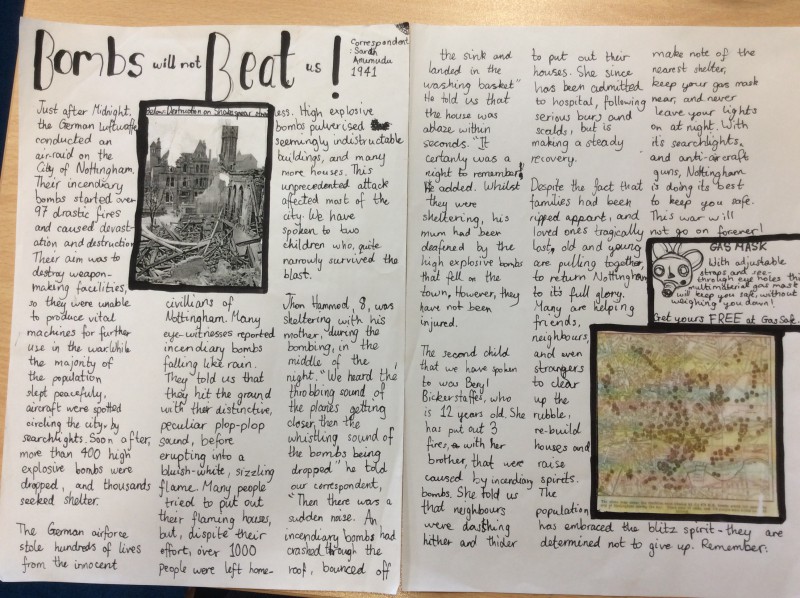 Bombs will not Beat us!
Correspondent
: Sarah
Amumudu
1941
Just after Midnight,
the German luftwaffe
conducted an
air-raid on the
City of Nottingham.
Their incendiary
bombs started over
97 drastic fires
and caused devast-
ation and destruction
Their aim was to
destroy weapon-
making facilities,
so they were unable
to produce vital
machines for further
use in the war. While
the majority of
the population
slept peacefully,
aircraft were spotted
circling the city, by
searchlights. Soon after,
more than 400 high
explosive bombs were
dropped, and thousands
seeked shelter.
The German airforce
stole hundreds of lives
from the innocent
Below: Destruction on Shakespear stree
civillians of
Nottingham. Many
eye-witnesses reported
incendiary bombs
falling like rain.
They told us that
they hit the ground
with their distinctive,
peculiar plop-plop
sound, before
erupting into a
bluish-white, sizzling
flame. Many people
tried to put out
their flaming houses,
but, dispite their
effort, over 1000
people were left home-
less. High explosive
bombs pulverised
seemingly indistructable
buildings, and many
more houses. This
unprecedented attack
affected most of the
city. We have
spoken to two
children who, quite
narrowly survived the
blast.
Jhon Hammod, 8, was
sheltering with his
mother, during the
bombing, in the
middle of the
night. "We heard the
throbbing sound of
the planes getting
closer, then the
whistling sound of
the bombs being
dropped" he told
our correspondent,
"Then there was a
sudden noise. An
incendiary bombs had
crashed through the
roof, bounced off
the sink and
landed in the
washing basket"
He told us that
the house was
ablaze within
seconds. "It
certanly was a
night to remember"
He added. Whilst
they were
sheltering, his
mum had been
deafened by the
high explosive bombs
that fell on the
town, However, they
have not been
injured.
The second child
that we have spoken
to was Beryl
Bickerstaffe, who
is 12 years old. She
has put out 3
fires, with her
brother, that were
caused by incendiary
bombs. She told us
that neighbours
were dashing
hither and thider
to put out their
houses. She since
has been admitted
to hospital, following
serious burs and
scalds, but is
making a steady
recovery.
Despite the fact that
families had been
ripped appart, and
loved ones tragically
lost, old and young
are pulling together,
to return Nottingham
to its full glory.
Many are helping
friends,
neighbours,
and even
strangers
to clear
up the
rubble,
re-build
houses and
raise
spirits.
The
population
has embraced the blitz spirit-they are
determined not to give up. Remember:
make note of the
nearest shelter,
keep your gas mask
near, and never
leave your lights
on at night. With
it's searchlights,
and anti-aircraft
guns, Nottingham
is doing its best
to keep you safe.
This war will
not go on forever!
GAS MASK
With adjustable
straps and see-
through eye holes this
multimaterial gas mask
will keep you safe, without
weighing you down!
Get yours FREE at Gas Safe.